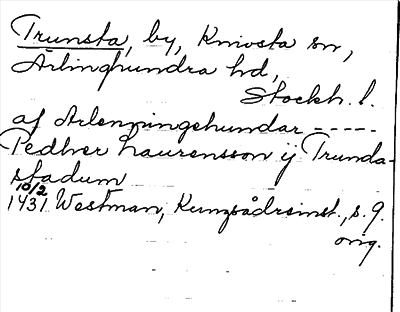 Trunsta, by, Knivsta sn,
Ärlinghundra hd,
Stockh. l.
af Arlenningehundar -----
Pedher Laurensson ij Trunda-
stadum
10/2
1431 Westman, Kungsådreinst., s. 9.
orig.